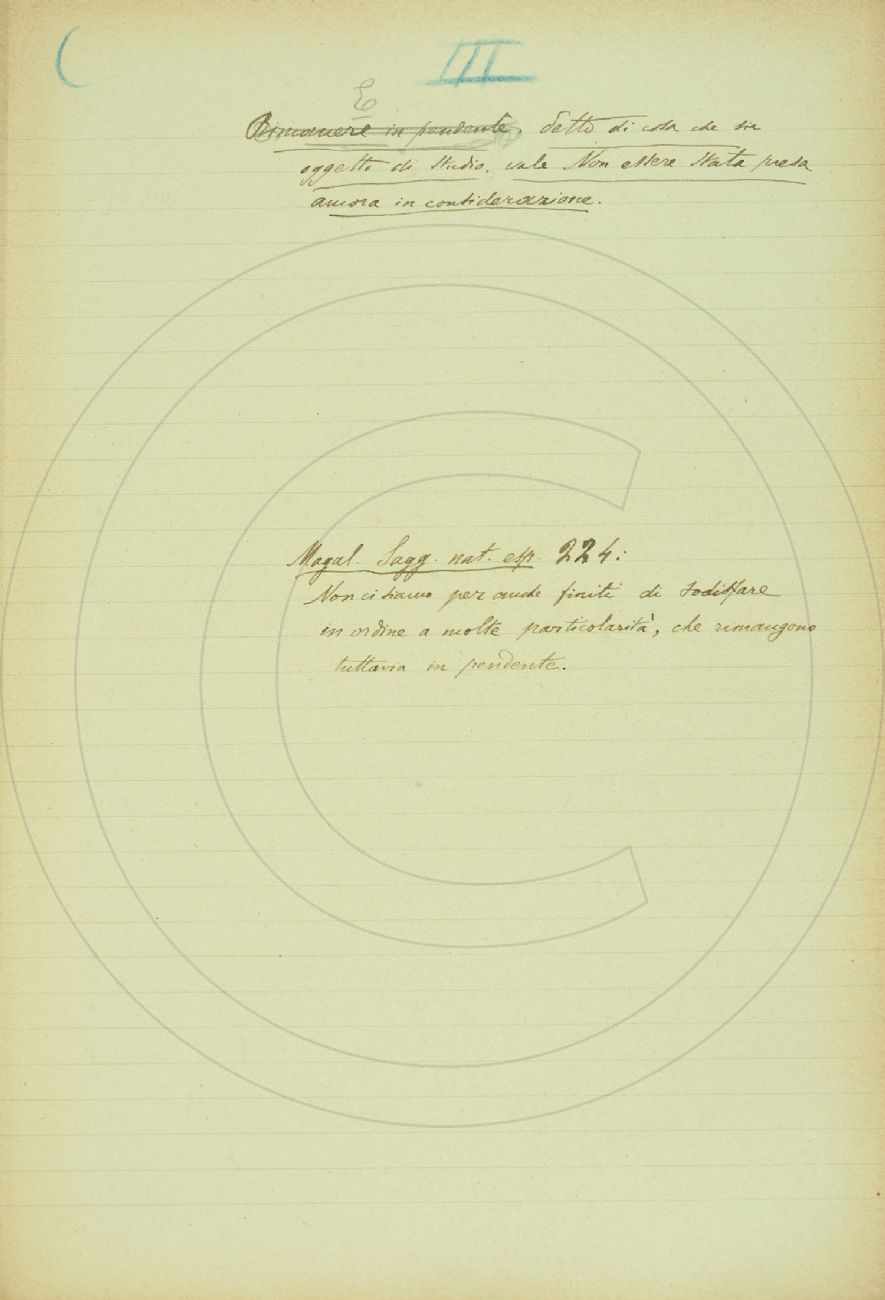 III
E
Rimanere in pendente, detto di cosa che sia
oggetto di studio, vale Non essere stata presa
ancora in considerazione.
Magal. Sagg. nat. esp. 224:
Non ci siamo per anche finiti di sodisfare
in ordine a molte particolarità, che rimangono
tuttavia in pendente.